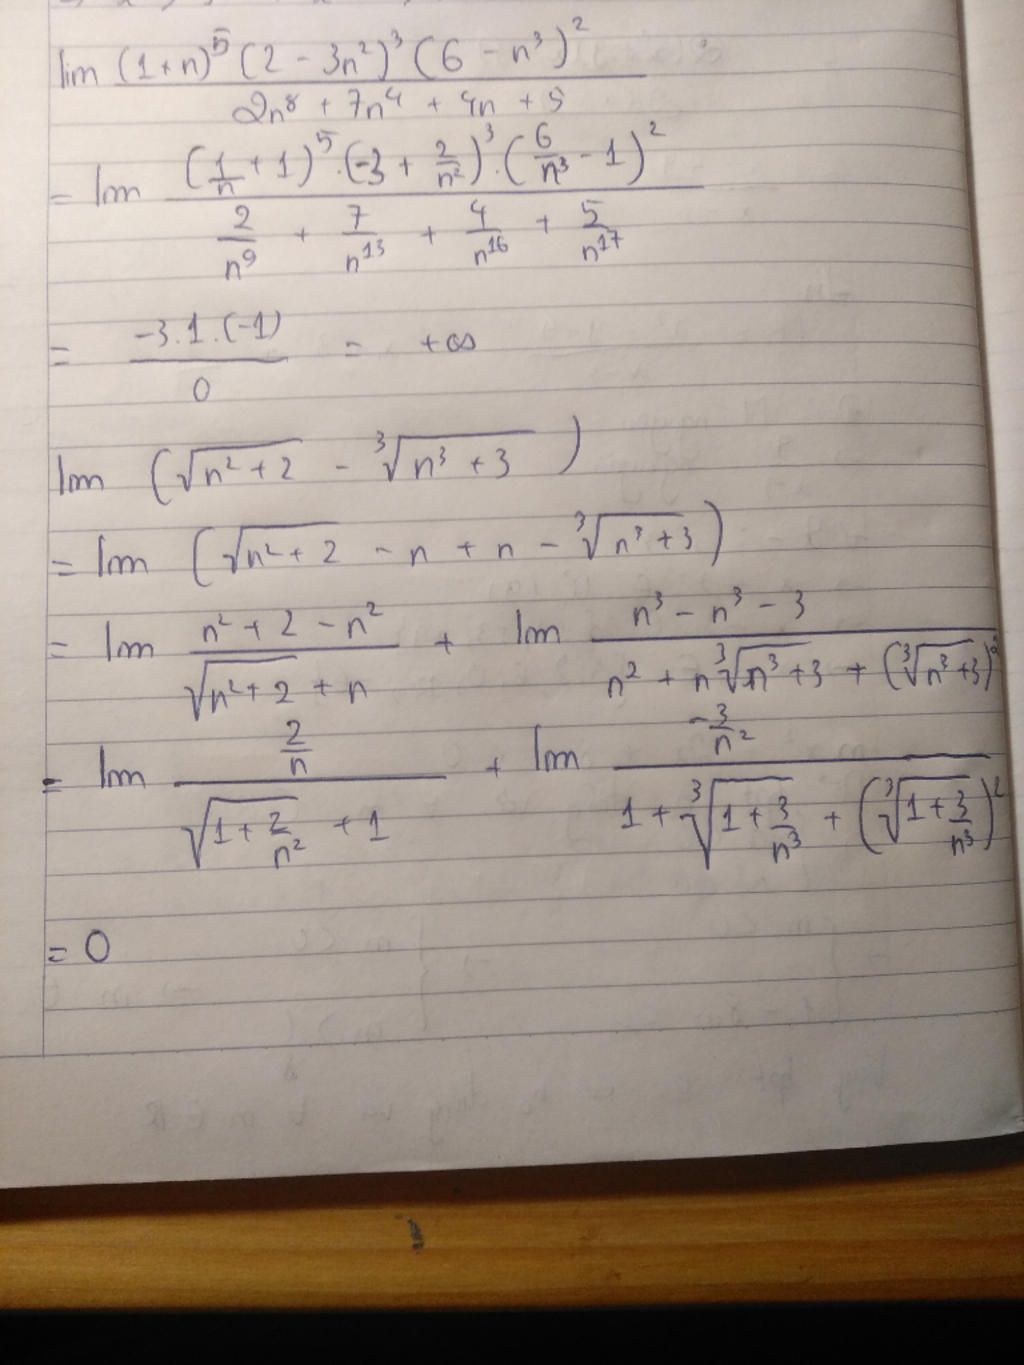 lim (1+n)⁵(2 - 3n²)³(6 - n³)² / (2n⁸ + 7n⁴ + 4n + 5)
= lim (1/n + 1)⁵.(-3 + 2/n²)³.(6/n³ - 1)² / (2/n⁹ + 7/n¹³ + 4/n¹⁶ + 5/n¹⁷)
= -3.1.(-1) / 0 = +∞
lim (√(n² + 2) - ³√(n³ + 3))
= lim (√(n² + 2) - n + n - ³√(n³ + 3))
= lim (n² + 2 - n²) / (√(n² + 2) + n) + lim (n³ - n³ - 3) / (n² + n ³√(n³ + 3) + (³√(n³ + 3))²)
= lim (2/n) / (√(1 + 2/n²) + 1) + lim (-3/n²) / (1 + ³√(1 + 3/n³) + (³√(1 + 3/n³))²)
= 0